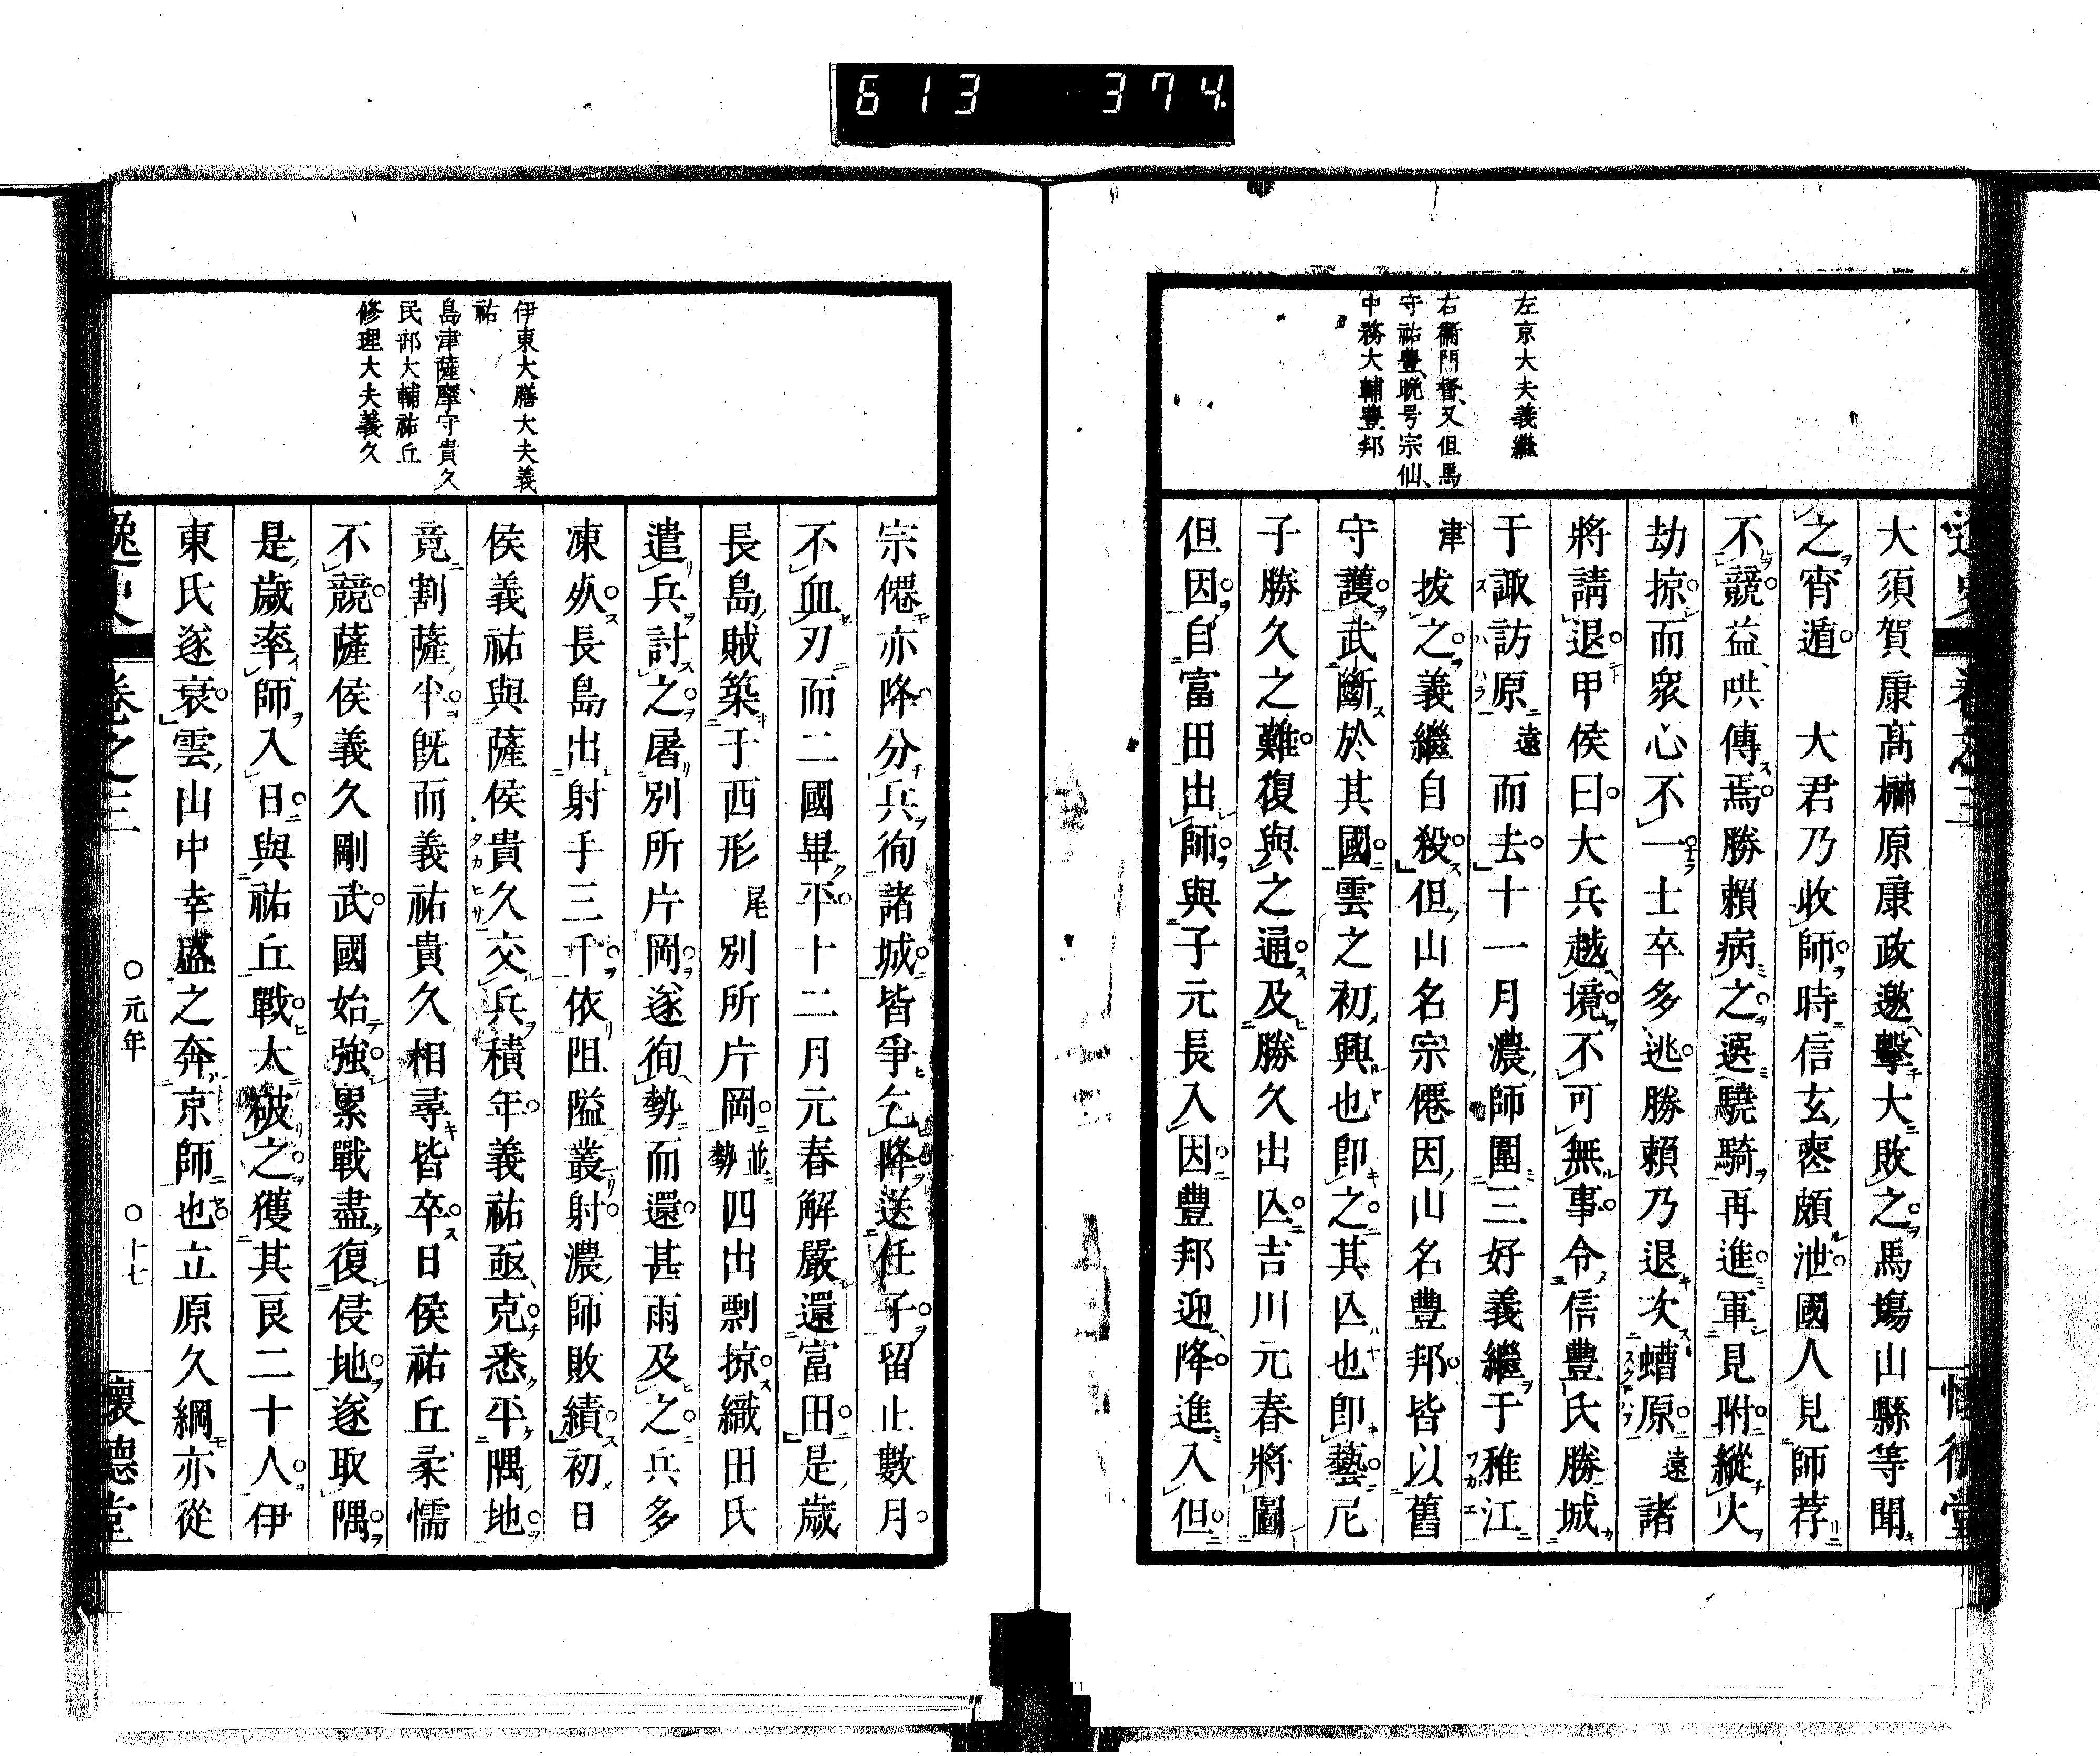 613 374.
逸史 卷之三 懷德堂
左京大夫義繼
右衞門督、又但馬
守祐豊、晩号宗仙、
中務大輔豊邦
大須賀康高榊原康政邀擊大敗之馬場山縣等聞
之宵遁　大君乃收師時信玄喪頗泄國人見師荐
不競益哄傳焉勝賴病之選驍騎再進軍見附縱火
劫掠而眾心不一士卒多逃勝賴乃退次螬原遠諸
將請退甲侯曰大兵越境不可無事令信豊氏勝城
于諏訪原遠而去十一月濃師圍三好義繼于稚江
津拔之義繼自殺但山名宗僊因山名豊邦皆以舊
守護武斷於其國雲之初興也卽之其亾也卽藝尼
子勝久之難復與之通及勝久出亾吉川元春將圖
但因自富田出師與子元長入因豊邦迎降進入但
伊東大膳大夫義
祐
島津薩摩守貴久
民部大輔祐丘
修理大夫義久
宗僊亦降分兵徇諸城皆爭乞降送任子留止數月
不血刃而二國畢平十二月元春解嚴還富田是歲
長島賊築于西形尾別所片岡並勢四出剽掠織田氏
遣兵討之屠別所片岡遂徇勢而還甚雨及之兵多
凍死長島出射手三千依阻隘叢射濃師敗績初日
侯義祐與薩侯貴久交兵積年義祐亟克悉平隅地
竟割薩半旣而義祐貴久相尋皆卒日侯祐丘柔懦
不競薩侯義久剛武國始強累戰盡復侵地遂取隅
是歲率師入日與祐丘戰大破之獲其良二十人伊
東氏遂衰雲山中幸盛之奔京師也立原久綱亦從
逸史 卷之三 〇元年 〇十七 懷德堂